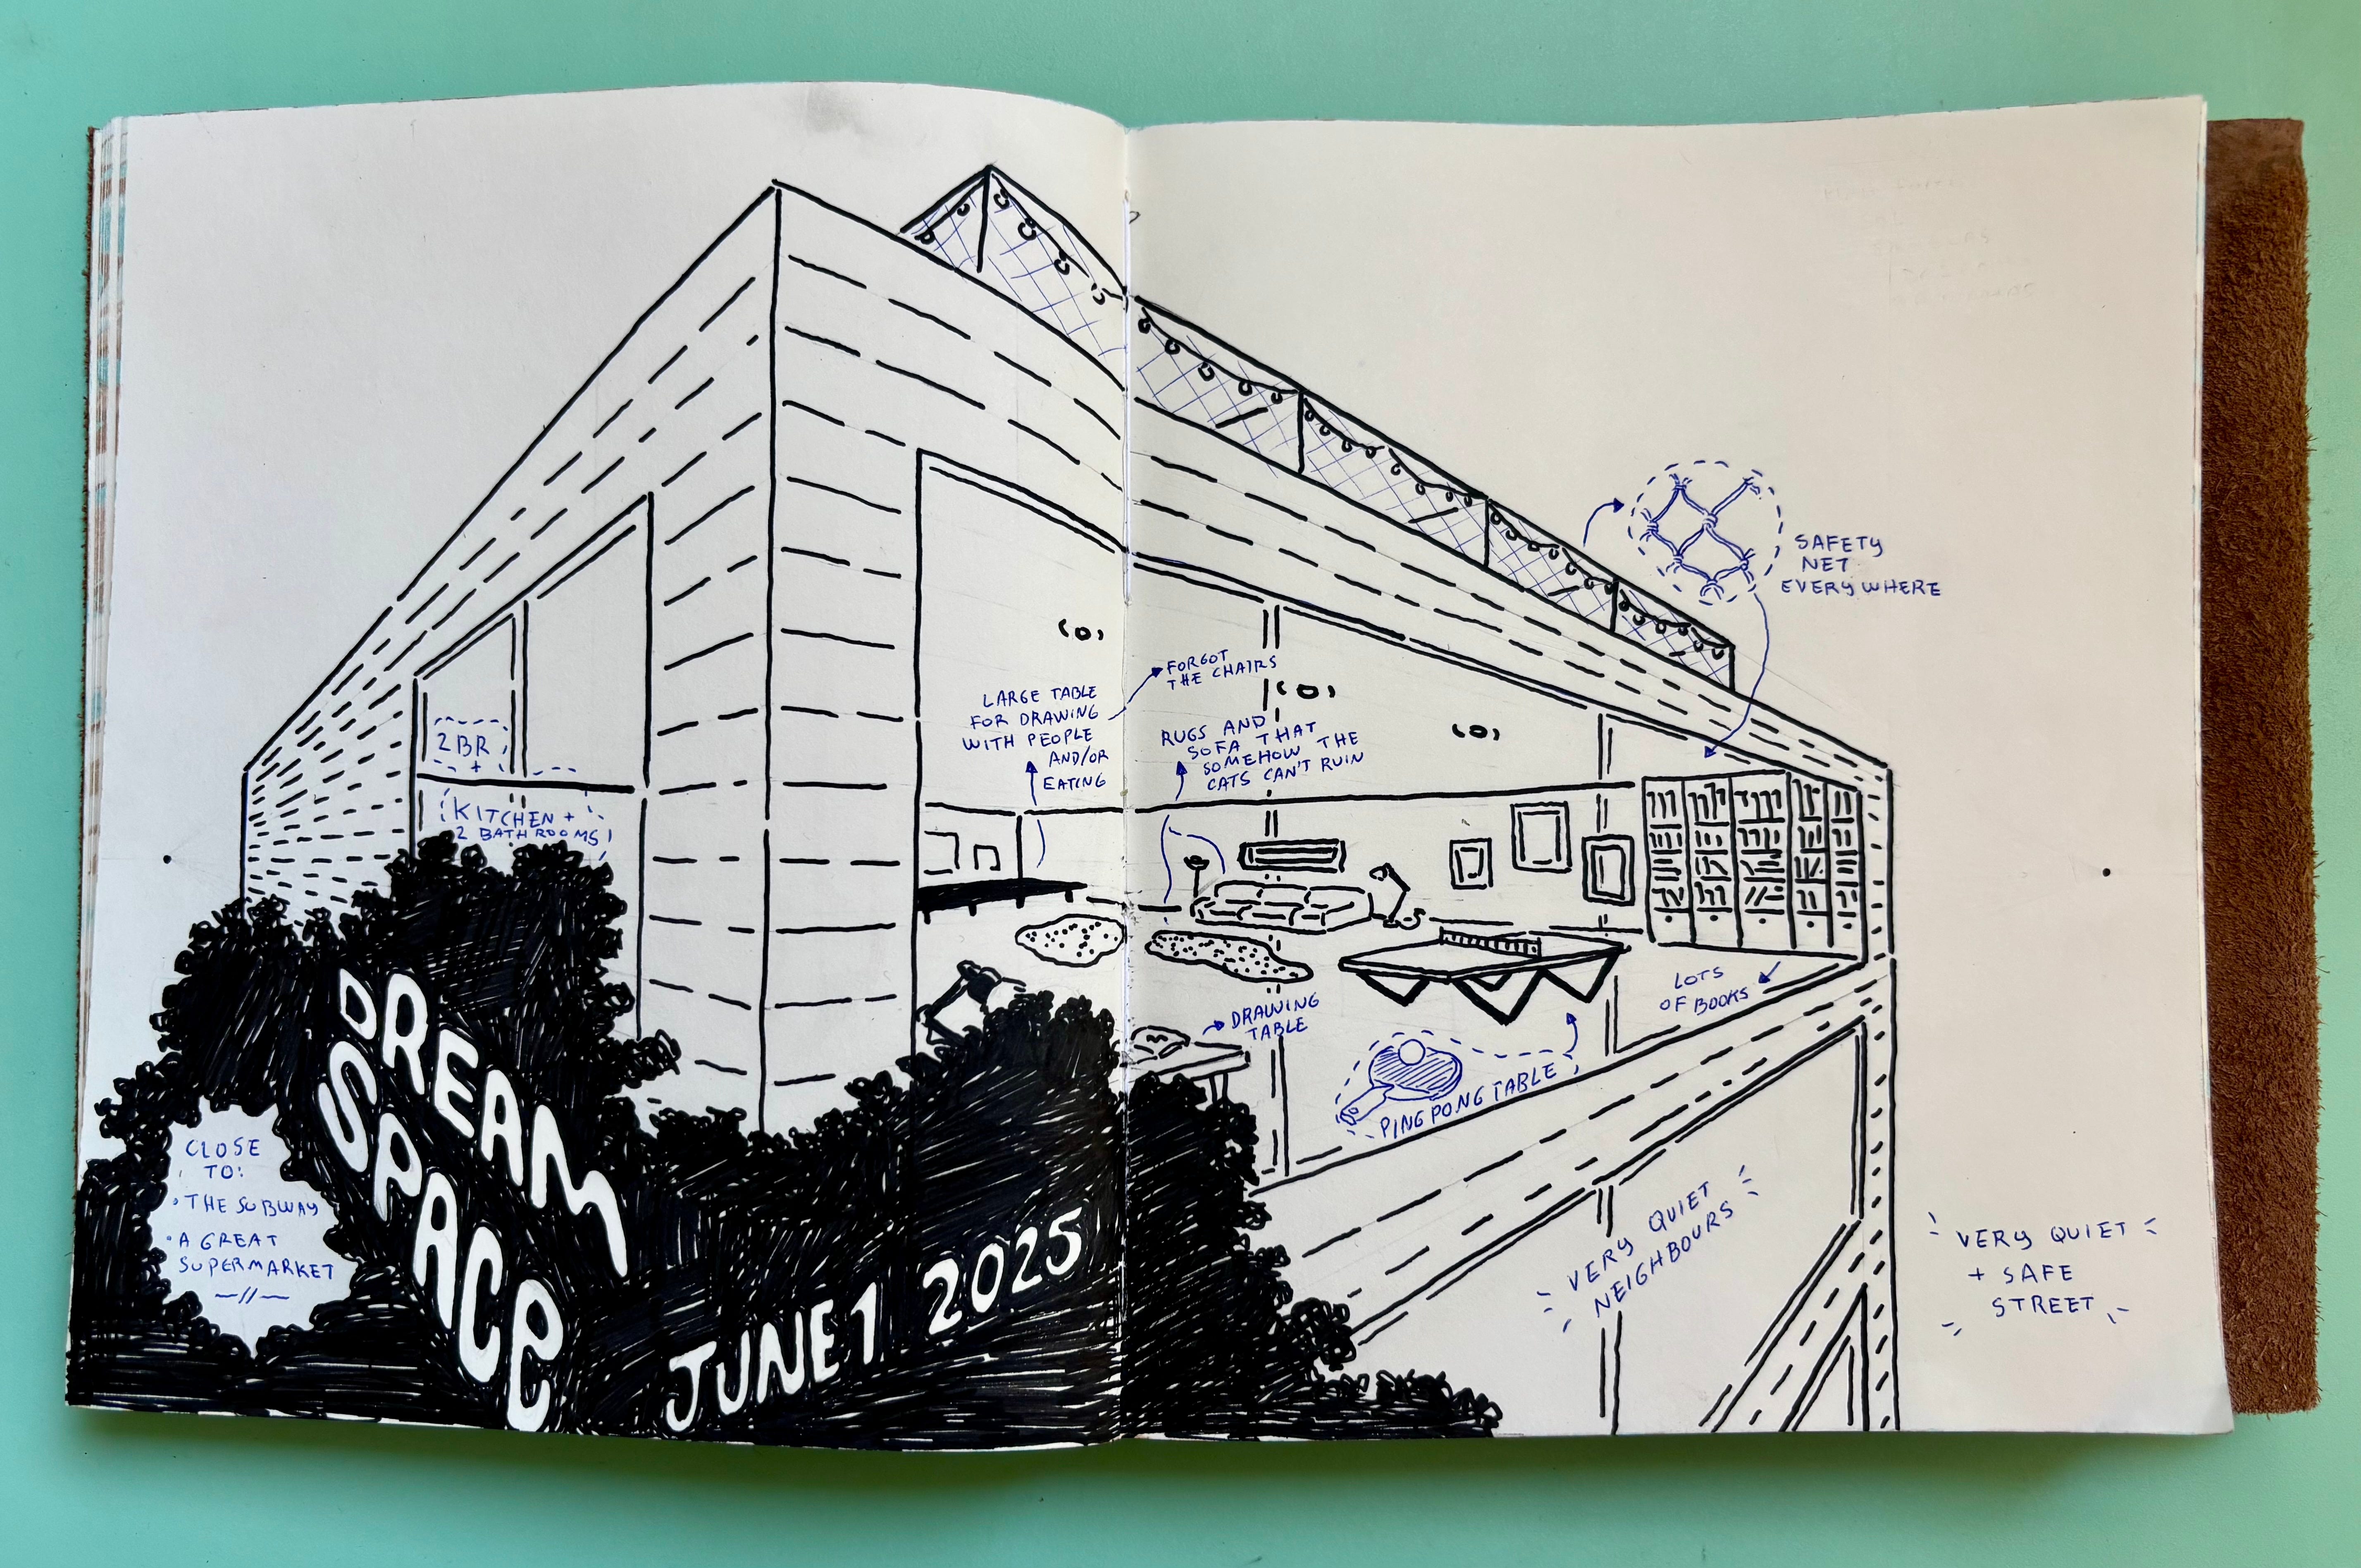 SAFETY
NET
EVERYWHERE
FORGOT
THE CHAIRS
LARGE TABLE
FOR DRAWING
WITH PEOPLE
AND/OR
EATING
RUGS AND
SOFA THAT
SOMEHOW THE
CATS CAN'T RUIN
2 BR
+
KITCHEN +
2 BATHROOMS
LOTS
OF BOOKS
DRAWING
TABLE
PING PONG TABLE
DREAM
SPACE
JUNE 1 2025
CLOSE
TO:
• THE SUBWAY
• A GREAT
SUPERMARKET
—//—
VERY QUIET
NEIGHBOURS
VERY QUIET
+ SAFE
STREET